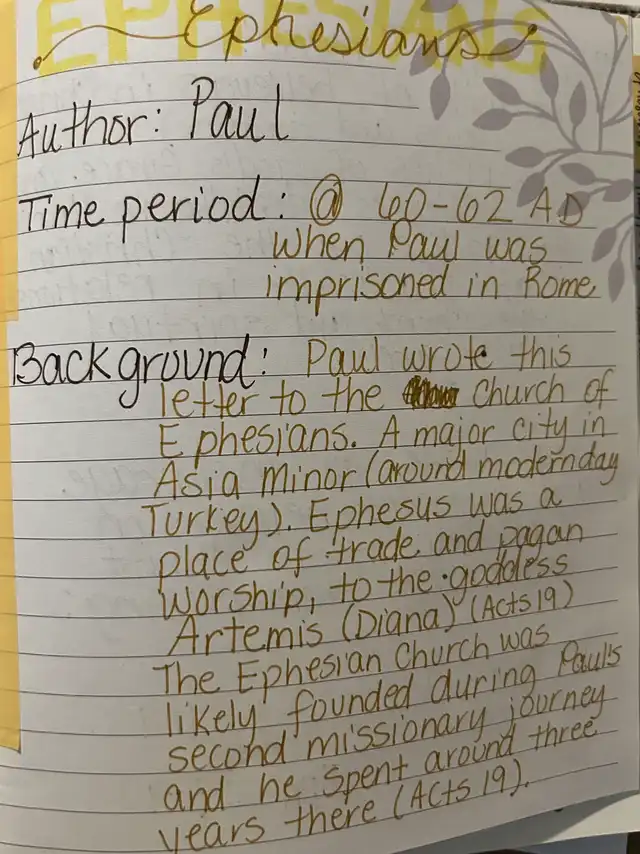 EPHESIANS
Ephesians
Author: Paul
Time period: @ 60-62 AD
when Paul was
imprisoned in Rome
Background: Paul wrote this
letter to the church of
Ephesians. A major city in
Asia Minor (around modernday
Turkey). Ephesus was a
place of trade and pagan
worship, to the goddess
Artemis (Diana) (Acts 19)
The Ephesian church was
likely founded during Paul's
second missionary journey
and he spent around three
years there (Acts 19).